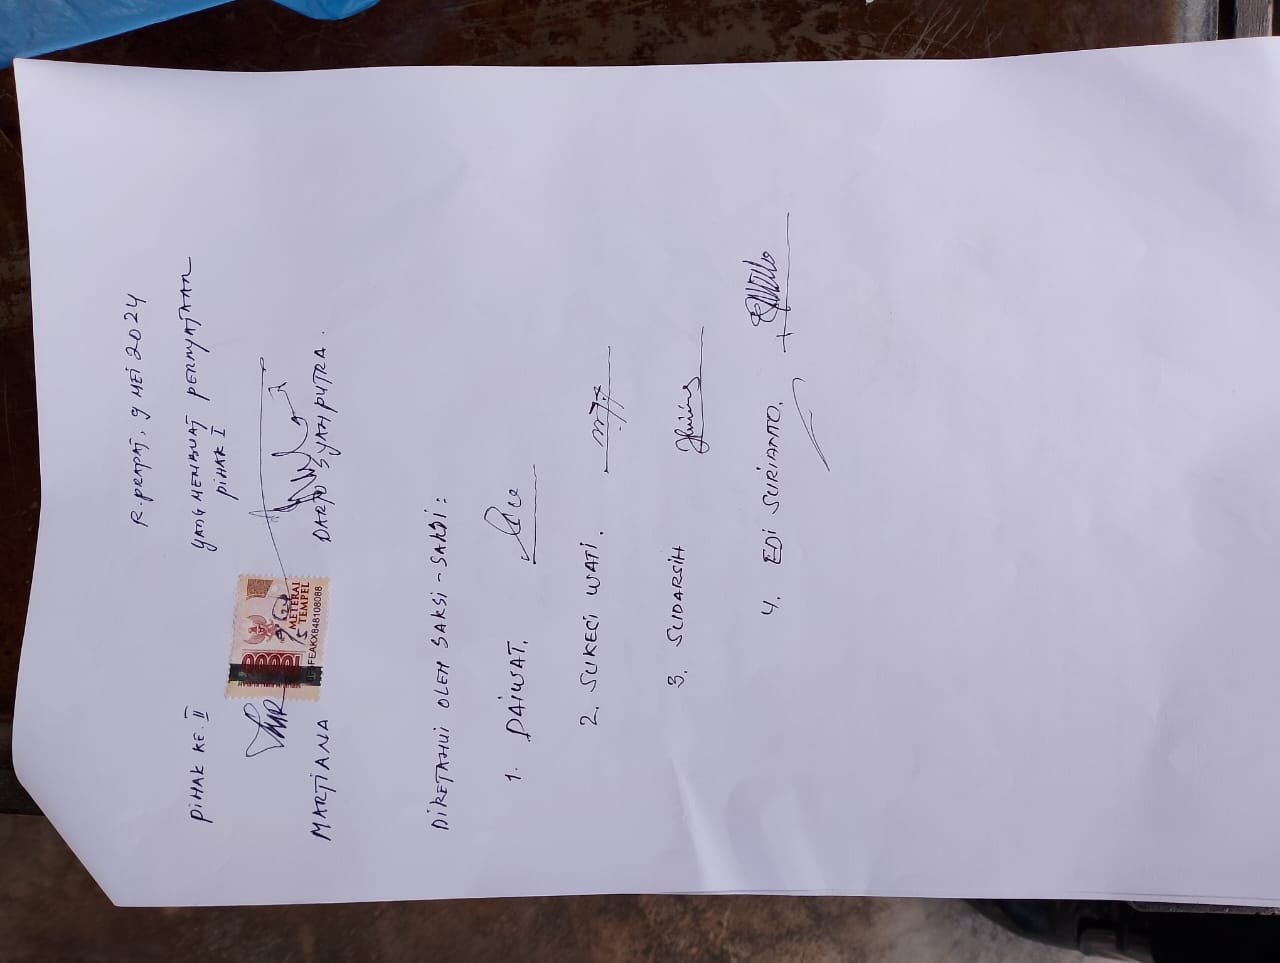 R. PRAPAT, 9 MEI 2024
PIHAK KE. II
YANG MEMBUAT PERNYATAAN
PIHAK I
METERAI
TEMPEL
MARTIANA
DARPO SYAHPUTRA.
DIKETAHUI OLEH SAKSI-SAKSI:
1. DAIWAT.
2. SUKECI WATI.
3. SUDARSIH
4. EDI SURIANTO.